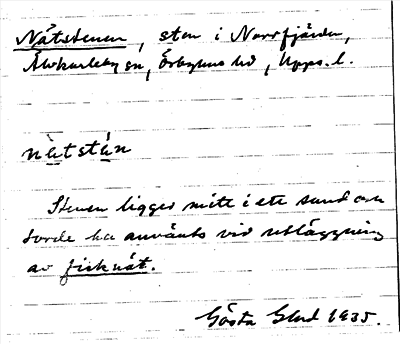 Nätstenen, sten i Norrfjärden,
Älvkarleby sn, Örbyhus hd, Upps. l.
nä̀tstén
Stenen ligger mitt i ett sund och
torde ha använts vid utläggning
av fisknät.
Gösta 1935.